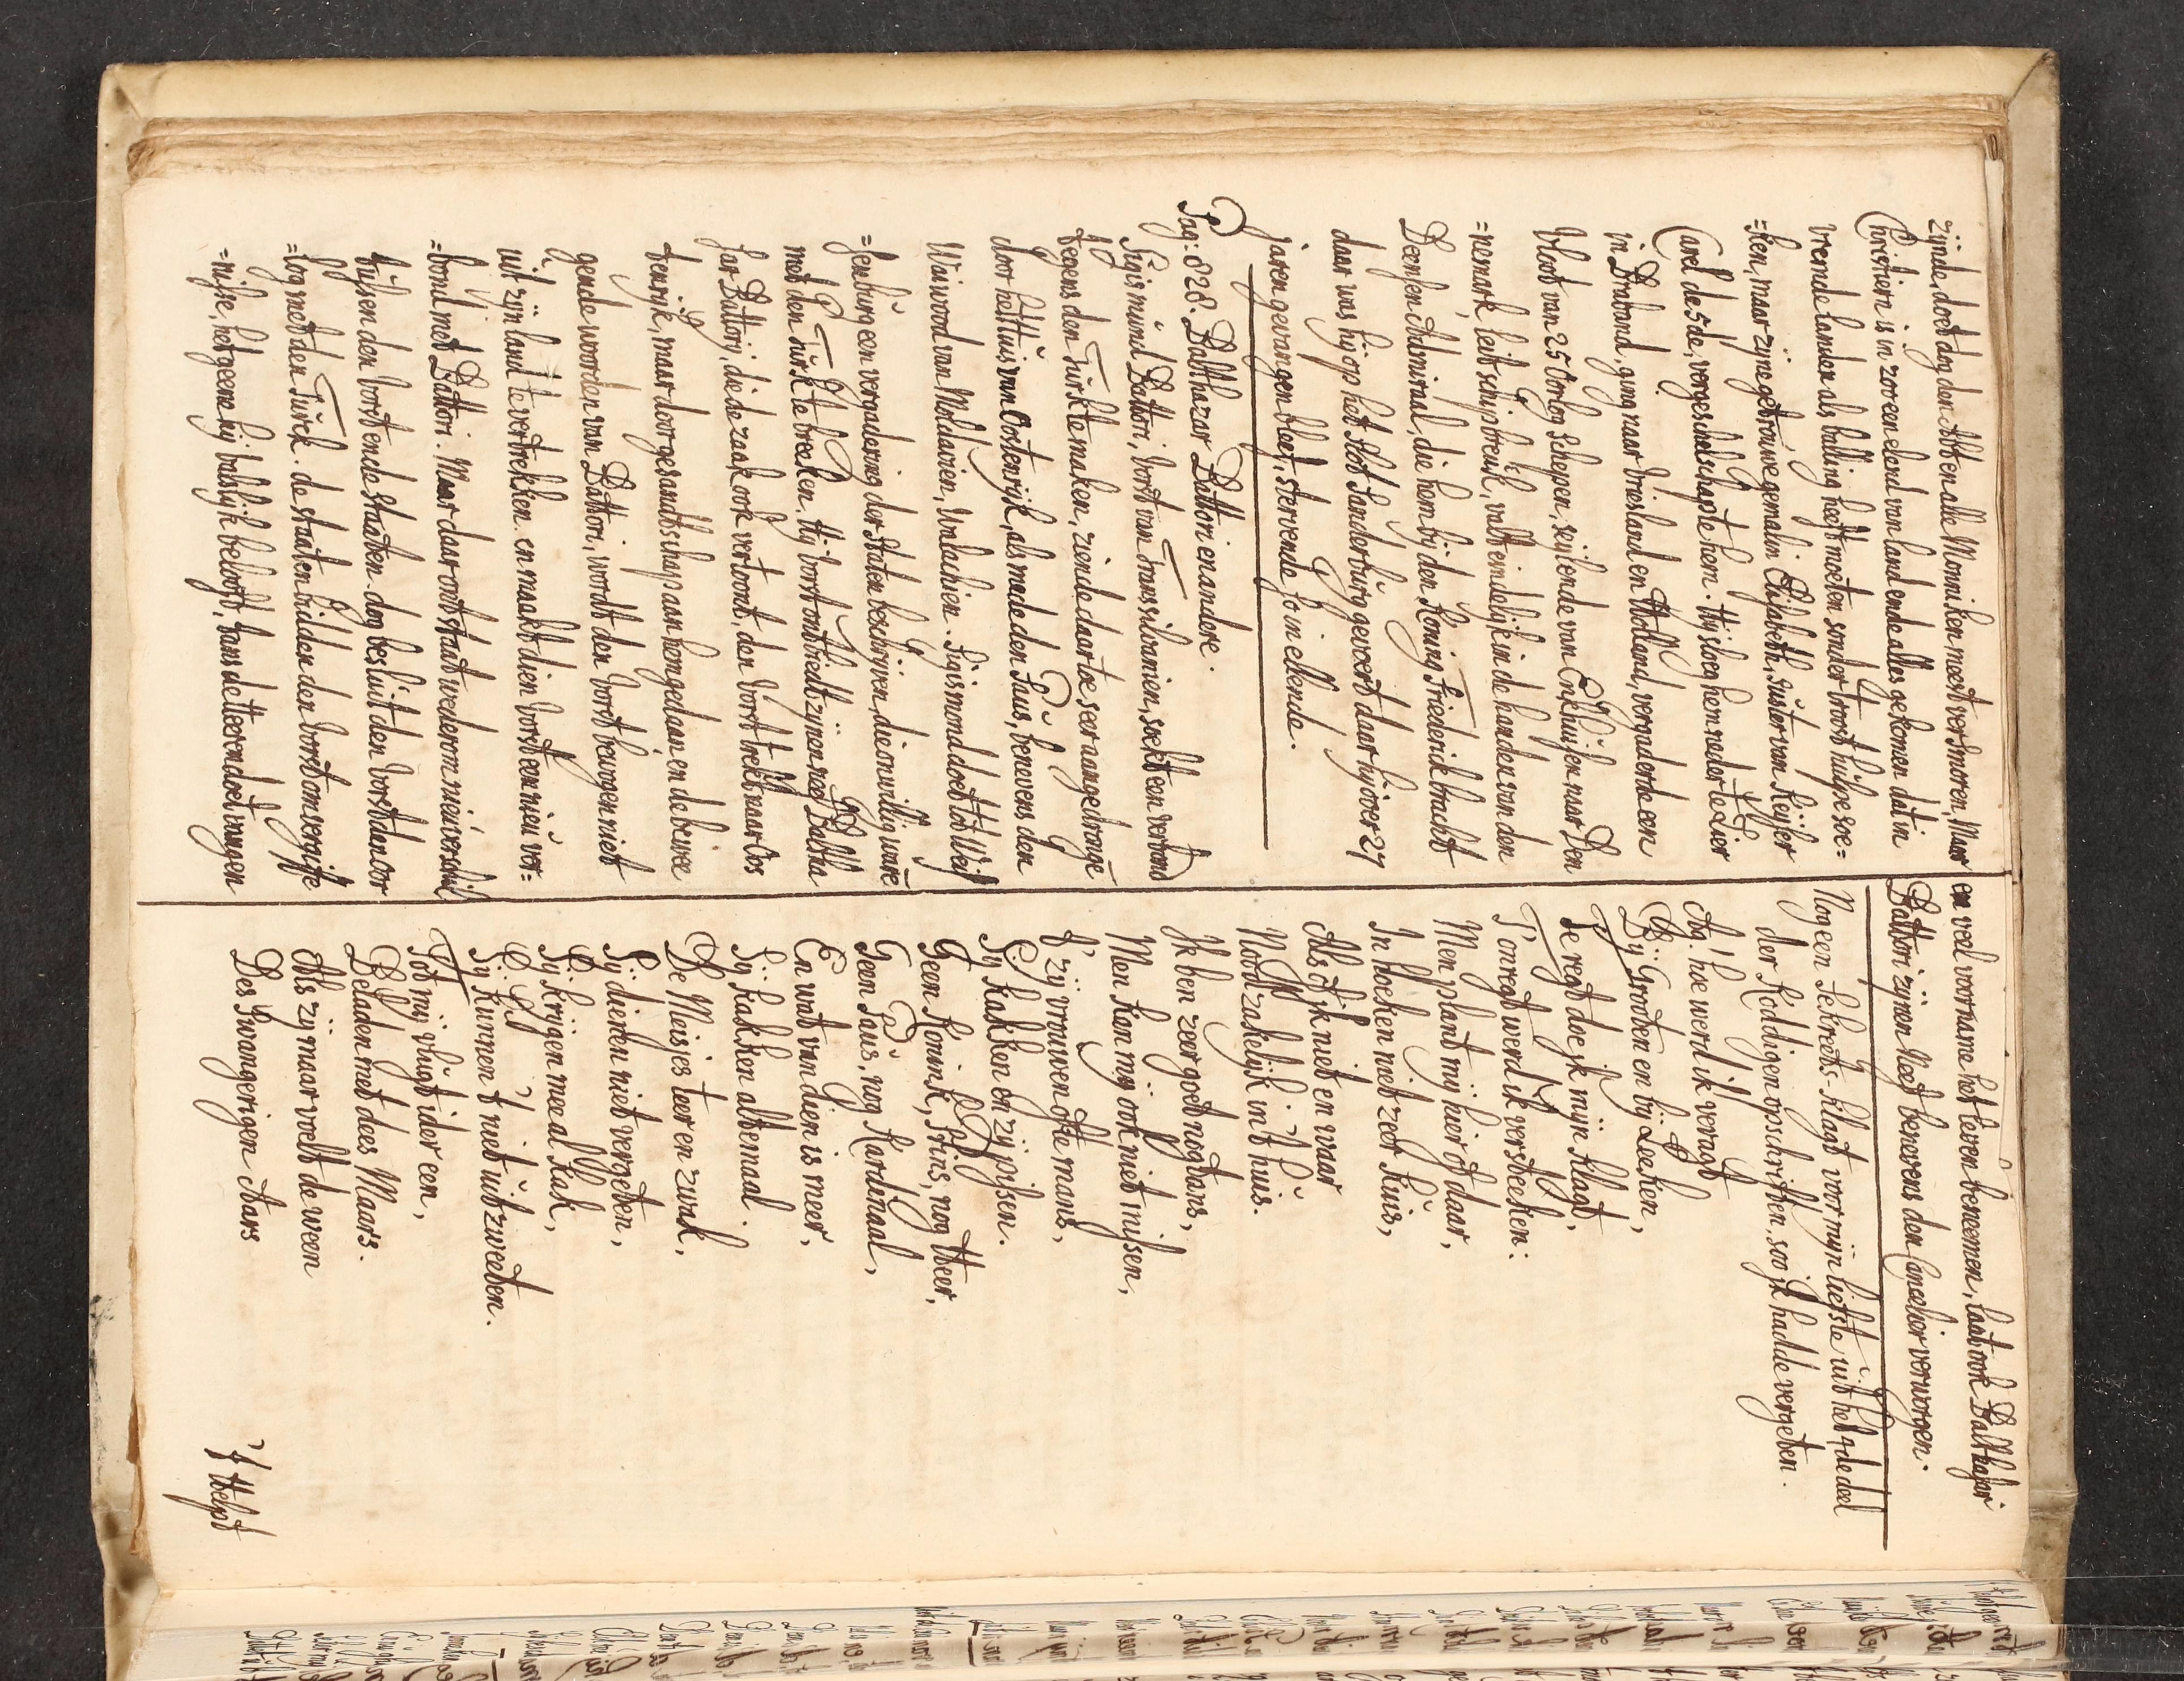 zijnde, doet dog den Abt en alle Monniken meest versmoren, Maar
Christiern is in zoo een elend van land ende alles gekomen dat in
vremde landen als balling heeft moeten sonder troost hulpe soe=
=ken, maar zijne getrouwe gemalin Elisabeth, suster van Keijser
Carel de 5de, vergeschelschapte hem. Hij sloeg hem neder te Lier
in Braband, ging naar Vriesland en Holland, vergaderde een
Vloot van 25 Oorlog Schepen, seijlende van Enkhuijsen naar Den
=nemark leit schipbreuk, valt eindelijk in de handen van den
Deensen Admiraal, die hem bij den Koning Friederick bracht
daar was hij op het Slot Sanderburg gevoert daar hij over 27
jaren gevangen bleef, stervende so in ellende.
Pag: 828. Balthazar Battori en andere.
Sigismund Battori, vorst van Transilvanien, soekt een verbond
tegens den Turk te maken, ziende daar toe seer aangedronge
door het huis van Oostenrijk, als mede den Paus, benevens den
Waiwod van Moldavien, Walachien. Sigismond doet tot Weis
=senburg een vergadering der Staten beschrijven, die onwillig ware
met den Turk te breeken. Hij vorst ontbiedt zijnen neef Baltha
=sar Battorij, die de zaak ook vertoont, den Vorst trekt naar Oos
tenrijk, maar door gesandtschap aan hem gedaan en de bewee
gende woorden van Battori, wordt den Vorst bewogen niet
uit zijn land te vertrekken en maakt dien Vorst een nieu ver=
=bond met Battori. Maar daar ontstaat wederom nieu verschil
tussen den Vorst ende Staaten. dog besluit den Vorst den Oor
=log met den Turck. de Staten bidden den Vorst om vergiffe
=nisse, het geene hij valslijk belooft, hans de Heeren doet vangen
en veel voorname het leven beneemen, laat ook Balthasar
Battori zijnen Neef benevens den Cancelier verworgen.
Nog een Sekreets-klagt voor mijn liefste uit het 4de deel
der Koddigen opschriften, soo jk hadde vergeten.
Ag! hoe werd ik veragt
Bij Grooten en bij Leeken,
Te regt doe jk mijn klagt,
T'onregt werd ik versteeken:
Men plant mij hier of daar,
In hoeken niet zeer kuis,
Als of jk niet en waar
Noodzakelijk in 't huis.
Jk ben zeer goet nogtans,
Men kan mij ook niet missen,
't zij vrouwen ofte mans,
Sij kakken en zij pissen.
Geen Konink, Prins, nog Heer,
Geen Paus, nog Kardinaal,
En wat van dien is meer,
Sij kakken altemaal.
De Meisjes teer en zwak,
Sij dienen niet vergeten,
Sij krijgen mee al kak,
Sij kunnen 't niet uit zweeten.
Tot mij vlugt ider een,
Beladen met dees Maars.
Als zij maar voelt de ween
Des Swangerigen Aars
'T Helpt